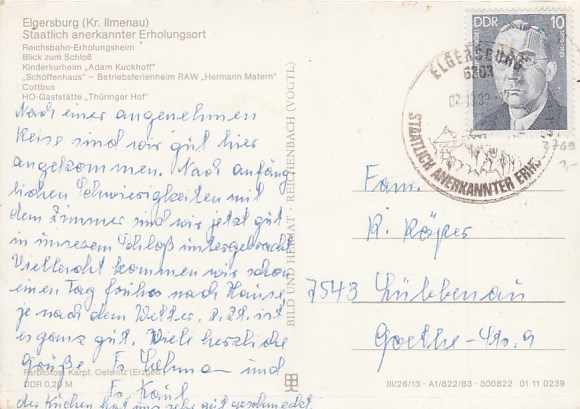 Elgersburg (Kr. Ilmenau)
Staatlich anerkannter Erholungsort
Reichsbahn-Erholungsheim
Blick zum Schloß
Kinderkurheim „Adam Kuckhoff“
„Schöffenhaus“ – Betriebsferienheim RAW „Hermann Matern“
Cottbus
HO-Gaststätte „Thüringer Hof“
Nach einer angenehmen
Reise sind wir gut hier
angekommen. Nach anfäng-
lichen Schwierigkeiten mit
dem Zimmer sind wir jetzt gut
in unserem Schloß untergebracht
Vielleicht kommen wir schon
einen Tag früher nach Hause,
je nach dem Wetter. z. Zt. ist
es ganz gut. Viele herzliche
Grüße Fr. Lehman und
Fr.
der Kuchen hat uns sehr gut geschmeckt.
Farbfotos: Karpf, Oelsnitz (Erzgeb.)
DDR 0,20 M
BILD UND HEIMAT · REICHENBACH (VOGTL)
DDR
10
ELGERSBURG
6303
STAATLICH ANERKANNTER ERH
2769
Fam.
K. Röper
7543 Lübbenau
Goethe-Str. 9
III/26/13 · A1/822/83 · 300822 01 11 0239